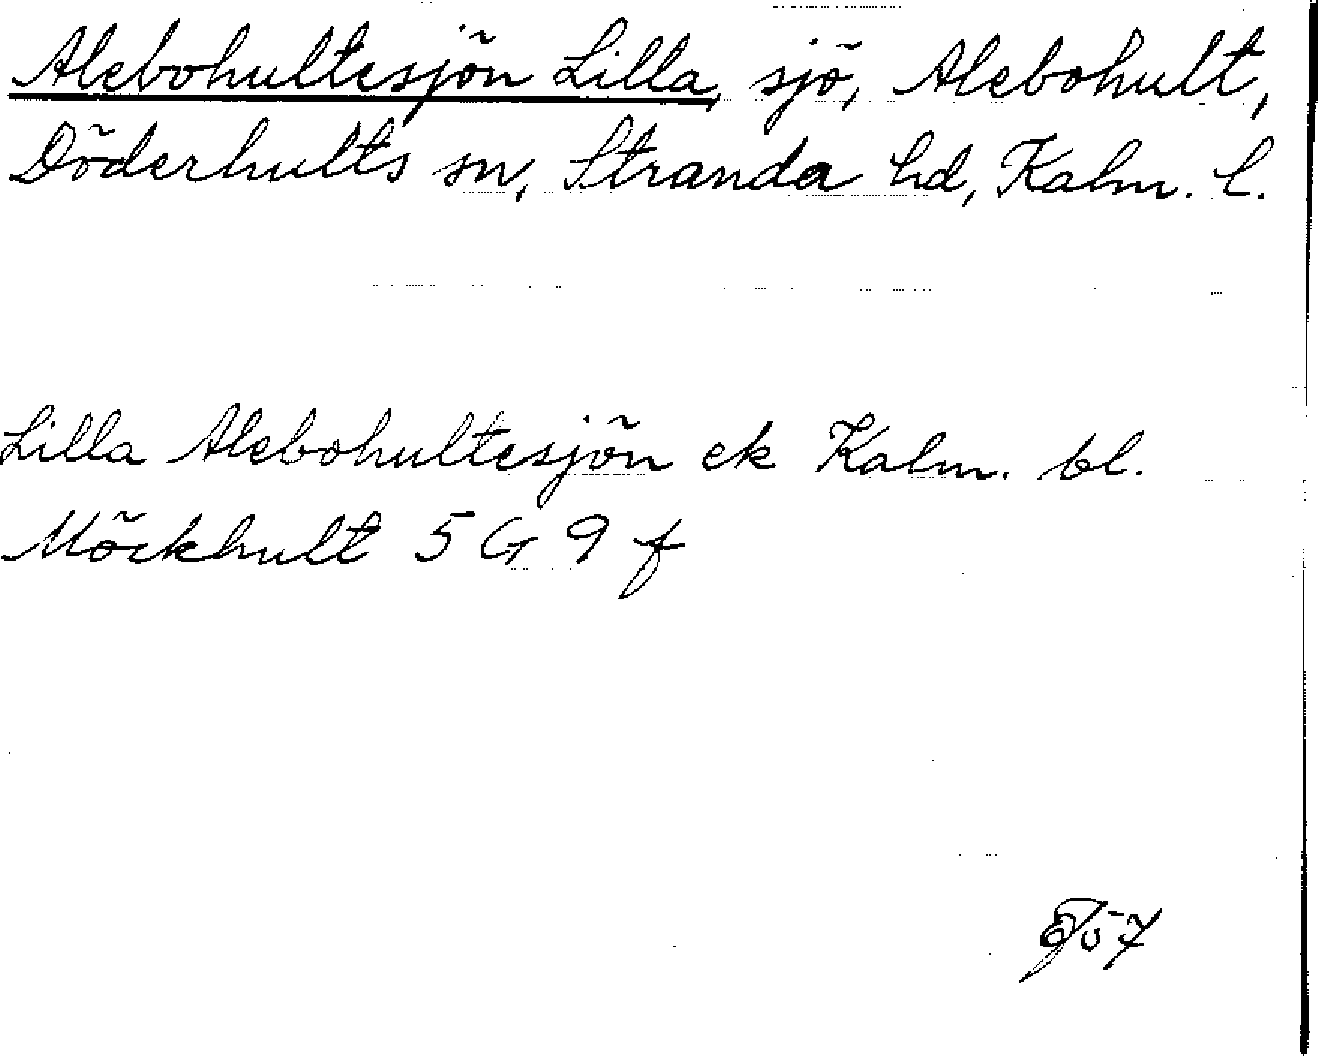 Alebohultesjön Lilla, sjö, Alebohult,
Döderhults sn, Stranda hd, Kalm. l.
Lilla Alebohultesjön ek Kalm. bl.
Möckhult 5 G 9 f